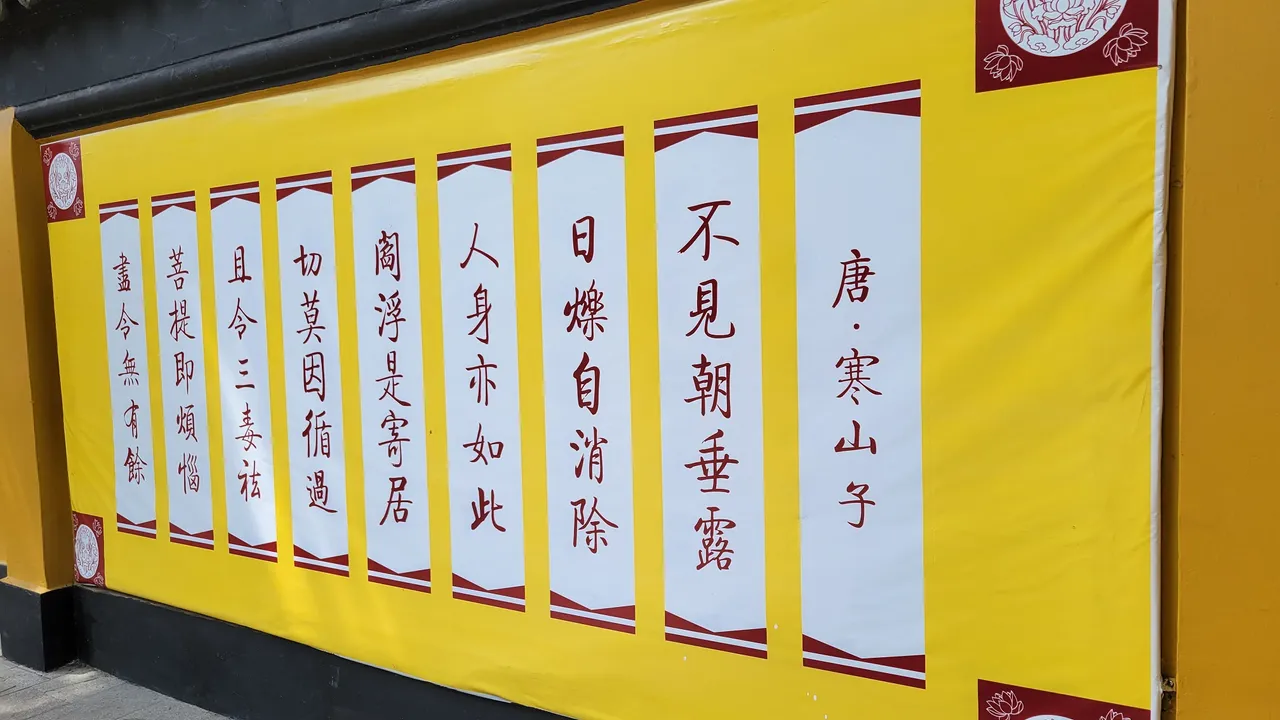 唐·寒山子
不見朝垂露
日爍自消除
人身亦如此
閻浮是寄居
切莫因循過
且令三毒祛
菩提即煩惱
盡令無有餘